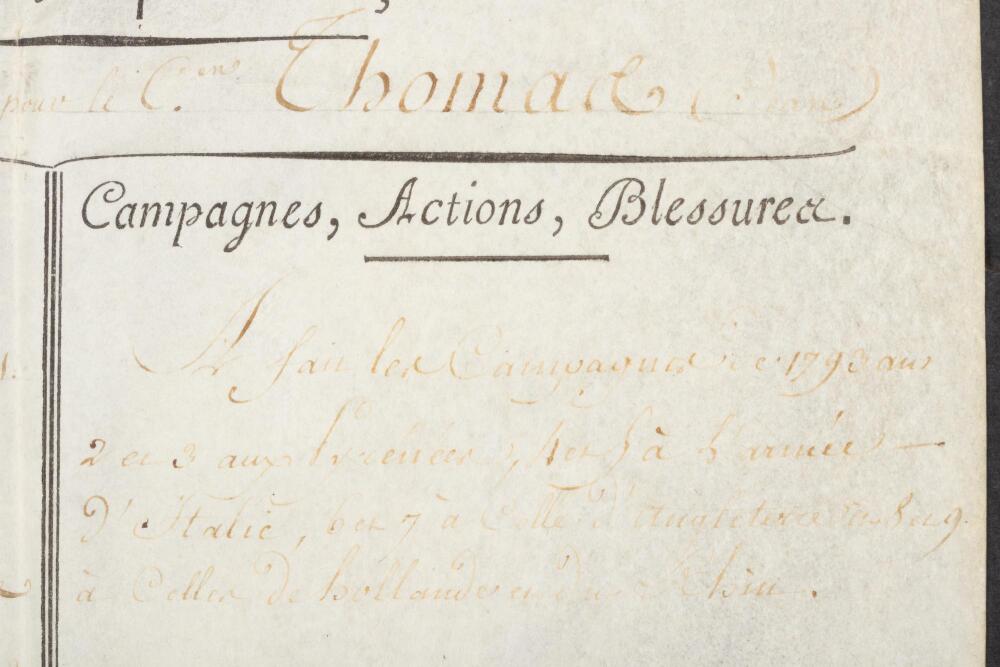 pour le C.en Thomas (Jean)
Campagnes, Actions, Blessures.
A fait les Campagnes de 1793 ans
2 et 3 aux Pyrénées, 4 et 5 à L'armée
D'Italie, 6 et 7 à Celle d'Angleterre 8 et 9
à Celles de hollande et du Rhin.